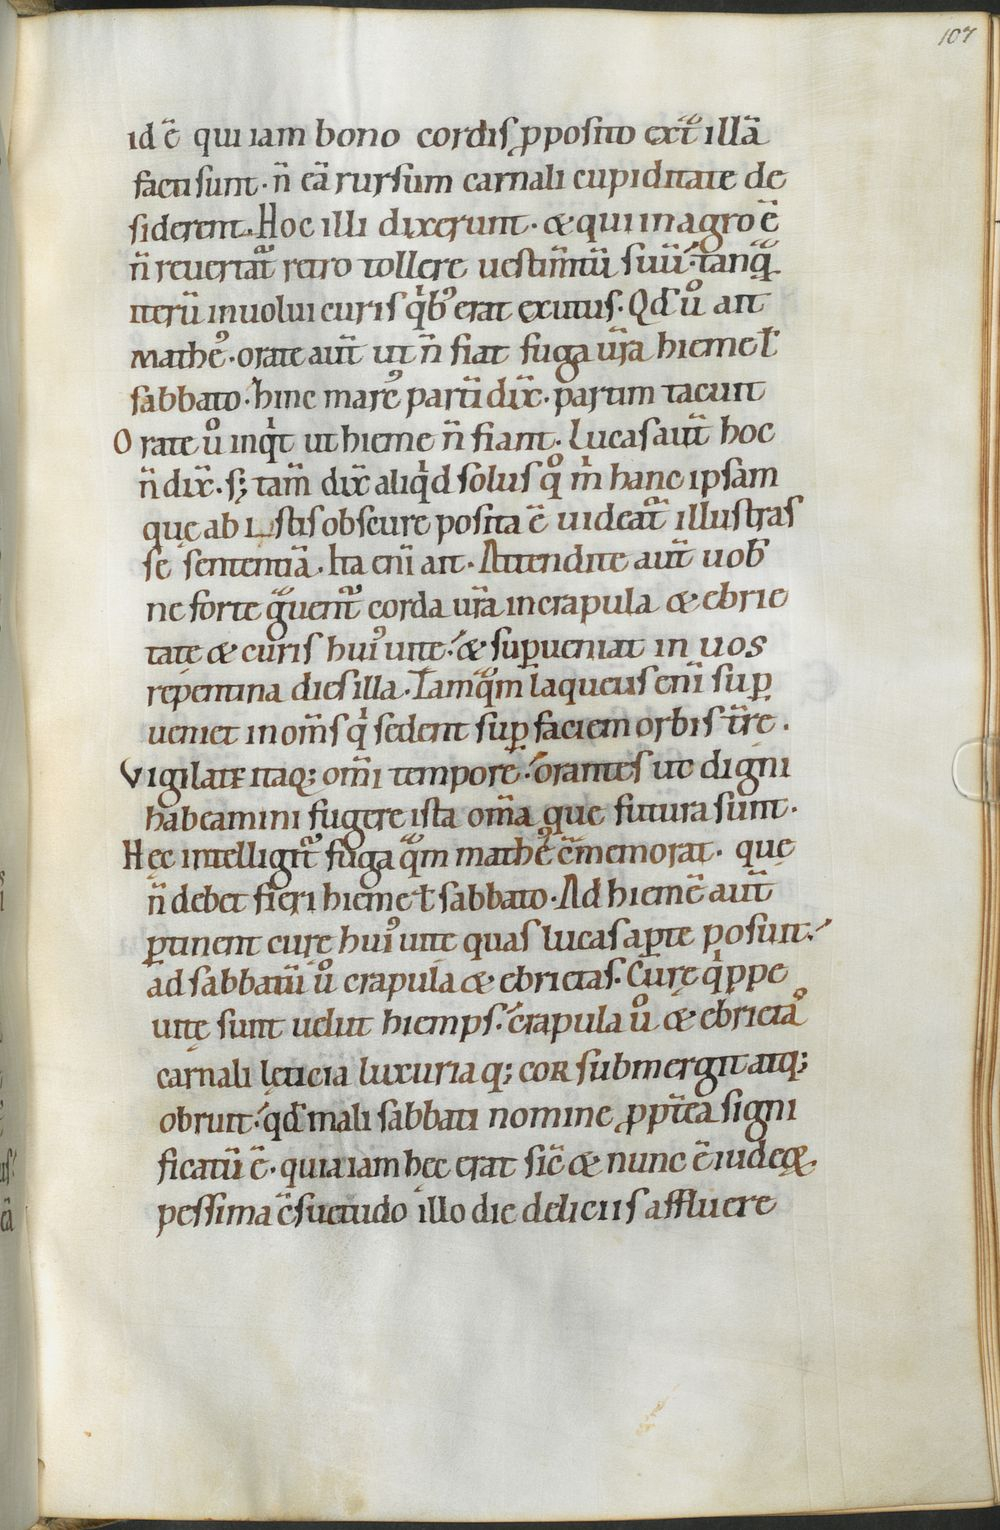 107
id ē qui iam bono cordis ꝓposito extͣ illā
facti sunt · n̄ eā rursum carnali cupiditate de
siderent. Hoc illi dixerunt · & qui in agro ē
n̄ reuertatᷣ retro tollere uestim̄tū suū · tanqͣ
iterū inuolui curis qͥbꝰ erat exutus · Qd̄ uͦ ait
matheꝰ · orate aut̄ ut n̄ fiat fuga ur̄a hieme ł
sabbato · hinc marcꝰ partī dix̄ · partim tacuit
Orate uͦ inqͥt ut hieme n̄ fiant · Lucas aut̄ hoc
n̄ dix̄ · sꝫ tam̄ dix̄ aliqͥd solus qͦ m̥ hanc ipsam
quę ab istis obscure posita ē uideatᷣ illustras
se sententiā · Ita eni̅ ait · Attendite aut̄ uob̄
ne forte gͣuent᷑ corda ur̄a in crapula & ebrie
tate & curis huiꝰ uitę · & suꝑueniat in uos
repentina dies illa · Tamqͣm laqueus eni̅ suꝑ
ueniet in om̄s qͥ sedent suꝑ faciem orbis tr̄ę ·
Vigilate itaqꝫ om̄i tempore · orantes ut digni
habeamini fugere ista om̄a quę futura sunt ·
Hęc intelligit᷑ fuga qͣm matheꝰ c̄memorat · quę
n̄ debet fieri hieme ł sabbato · Ad hiemē aut̄
ꝑtinent curę huiꝰ uitę quas lucas aꝑte posuit ·
ad sabbatū uͦ crapula & ebrietas · Curę qͥppe
uitę sunt uelut hiemps · crapula uͦ & ebrietas
carnali lęticia luxuriaqꝫ cor submergit atqꝫ
obruit · qd̄ mali sabbati nomine ꝓpt̄ea signi
ficatū ē · quia iam hęc erat sic̄ & nunc ē iudeoꝝ
pessima c̄suetudo illo die deliciis affluere